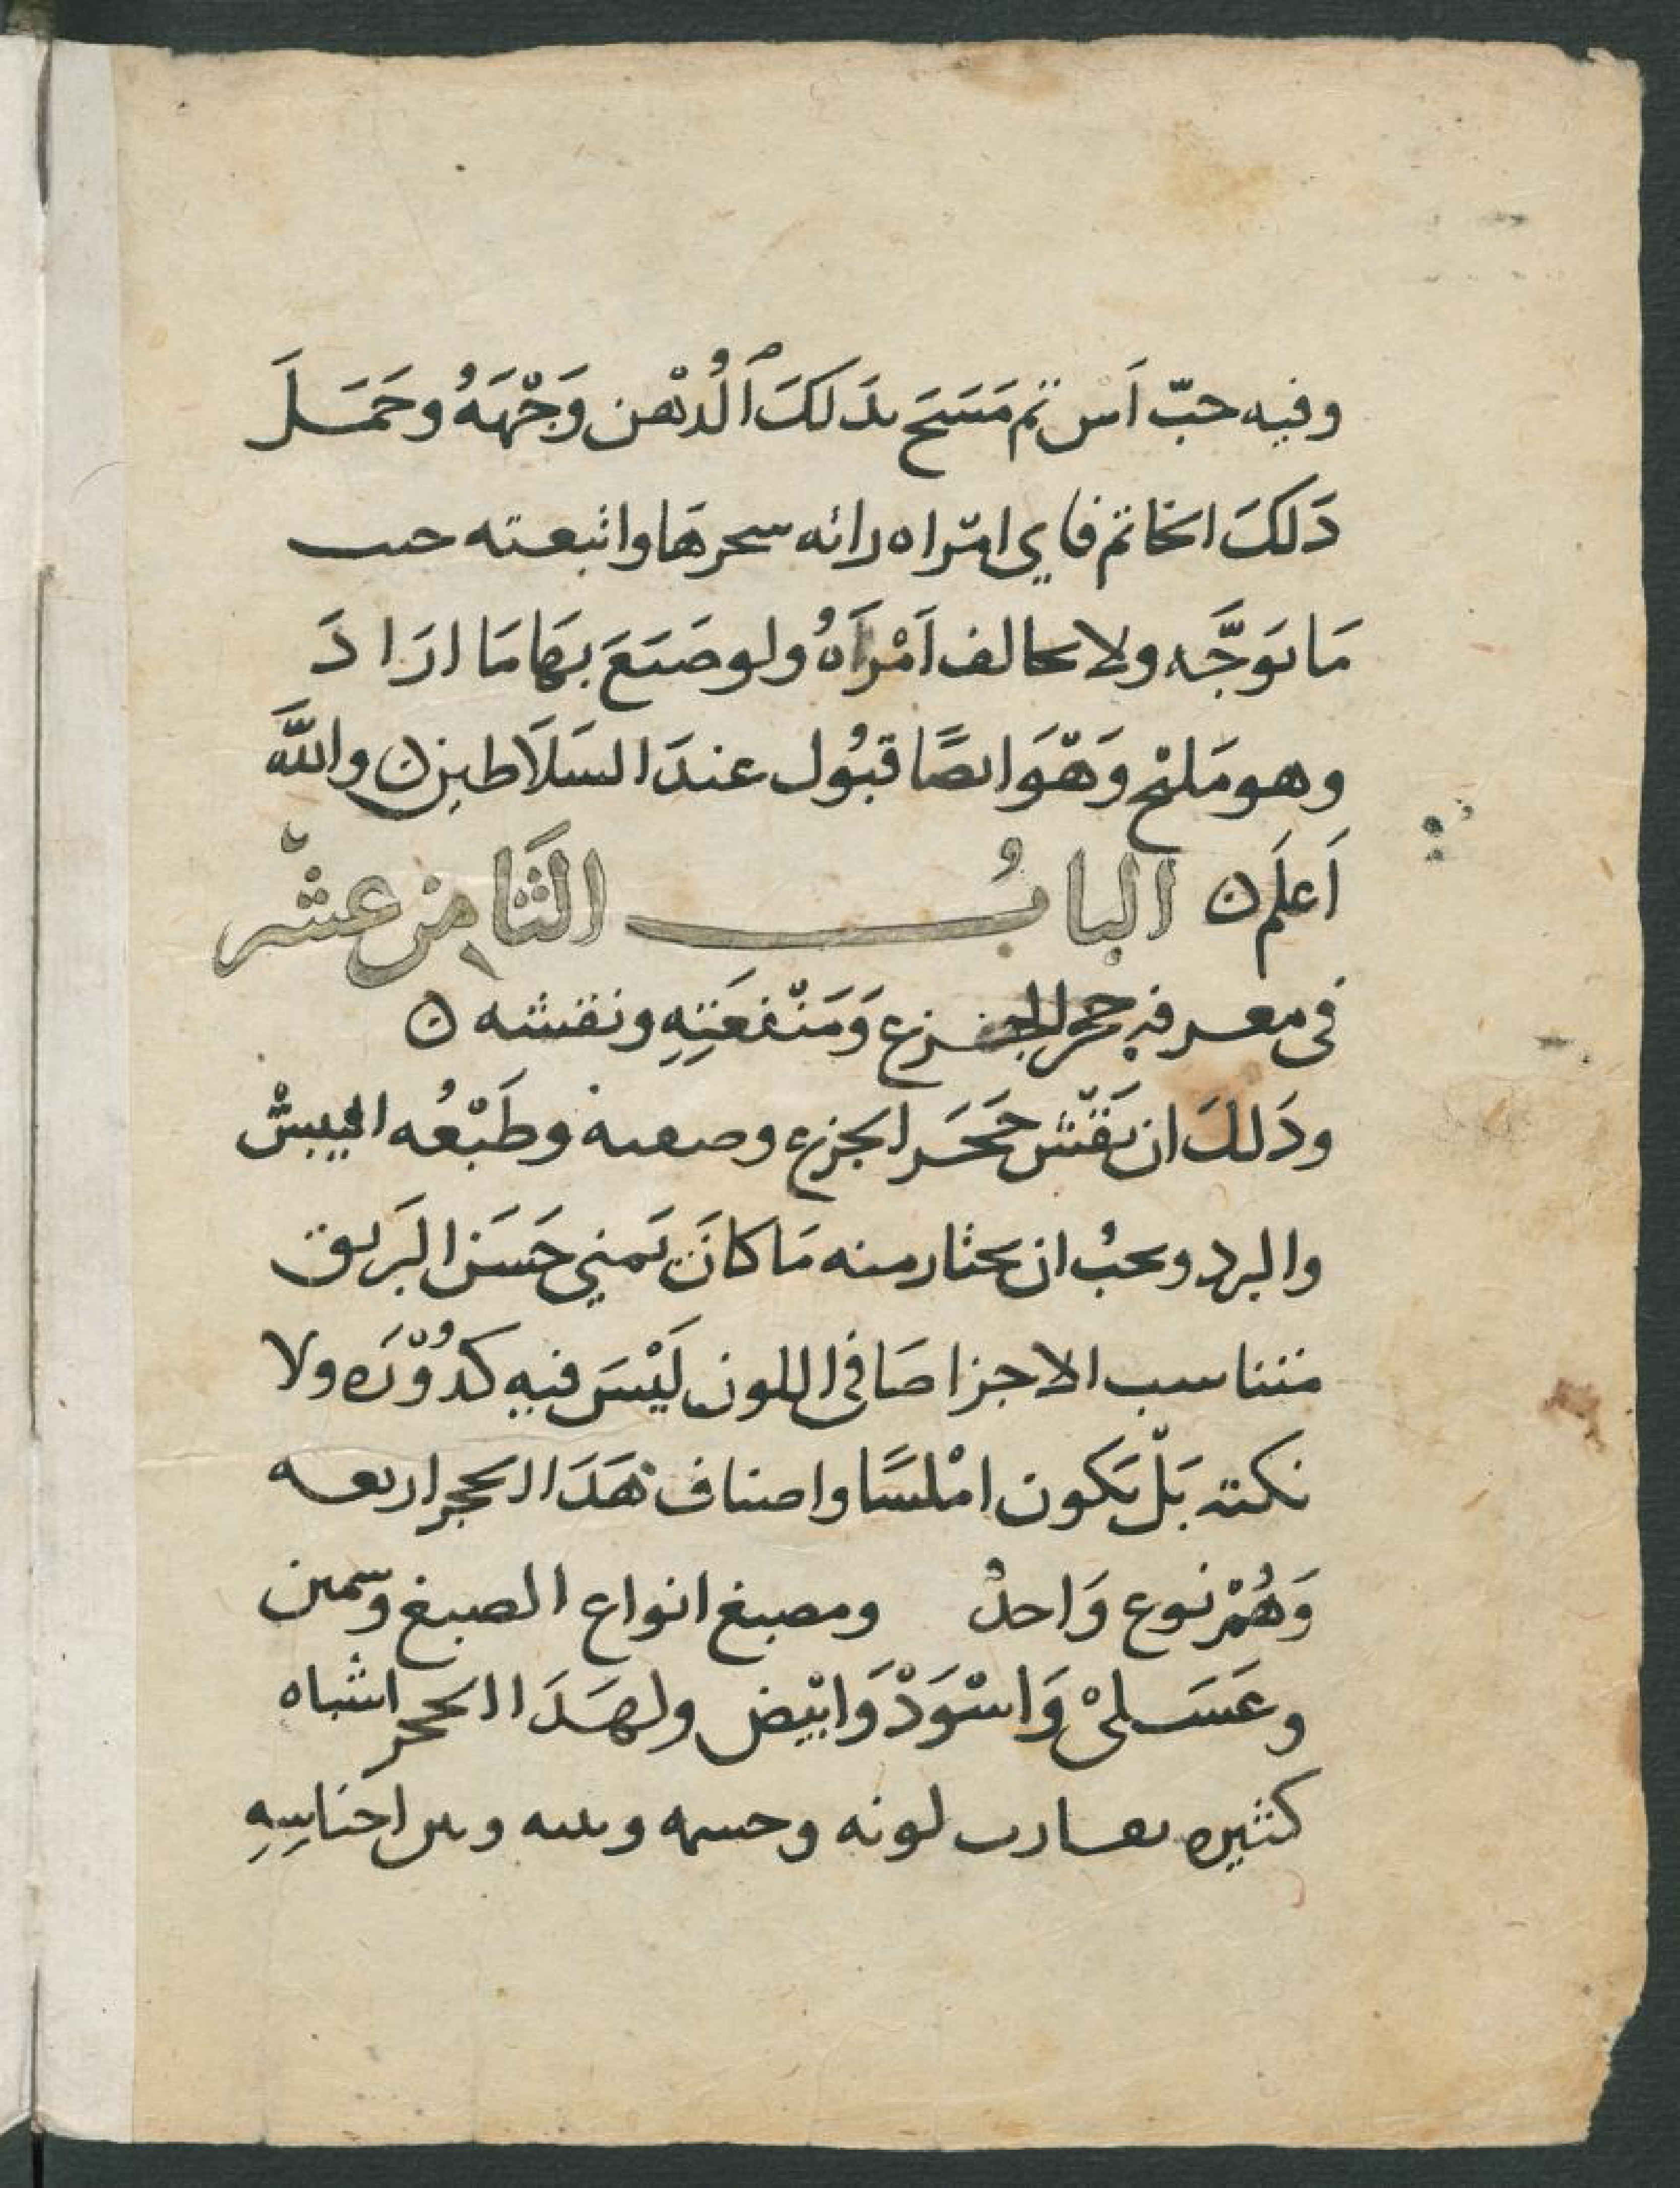 وفيه حبّ اَس ثم مَسَحَ بدَلكَ الدُهْن وَجْهَهُ وحَمَلَ
دَلكَ الخاتم فاي امراه راته سحرها واتبعته حيت
مَا توَجَّه ولا يخالف اَمْرَاهُ ولو صَنَعَ بهَا مَا ارَادَ
وهو مَليْح وَهْوَ ايضًا قبُول عندَ السَلَاطين ن واللَّه
اَعلَم ن البابُ الثَامن عشْر
فى معرفه حجر الجزع وَمَنْفعَتِهِ ونقشه ن
ودَلكَ ان نَقْش حَجَر الجزع وصفته وطَبْعُه اليبسْ
والبرد ويجبُ ان يختار منه مَا كانَ يَمني حَسَن البَريق
متناسب الاجزا صَافى اللون لَيْسَ فيهِ كدُوْرَه ولا
نكته بَلْ يَكون امْلسًا واصناف هَدَا الحجر اربعه
وَهُمْ نوع وَاحدُ ومصبغ انواع الصبغ وسمين
وعَسَلىْ وَاسْوَدْ وَابْيَض ولهَدَا الحجر اشباه
كثيره تقارب لونه وجسمه وبينه وبين اجناسِهِ